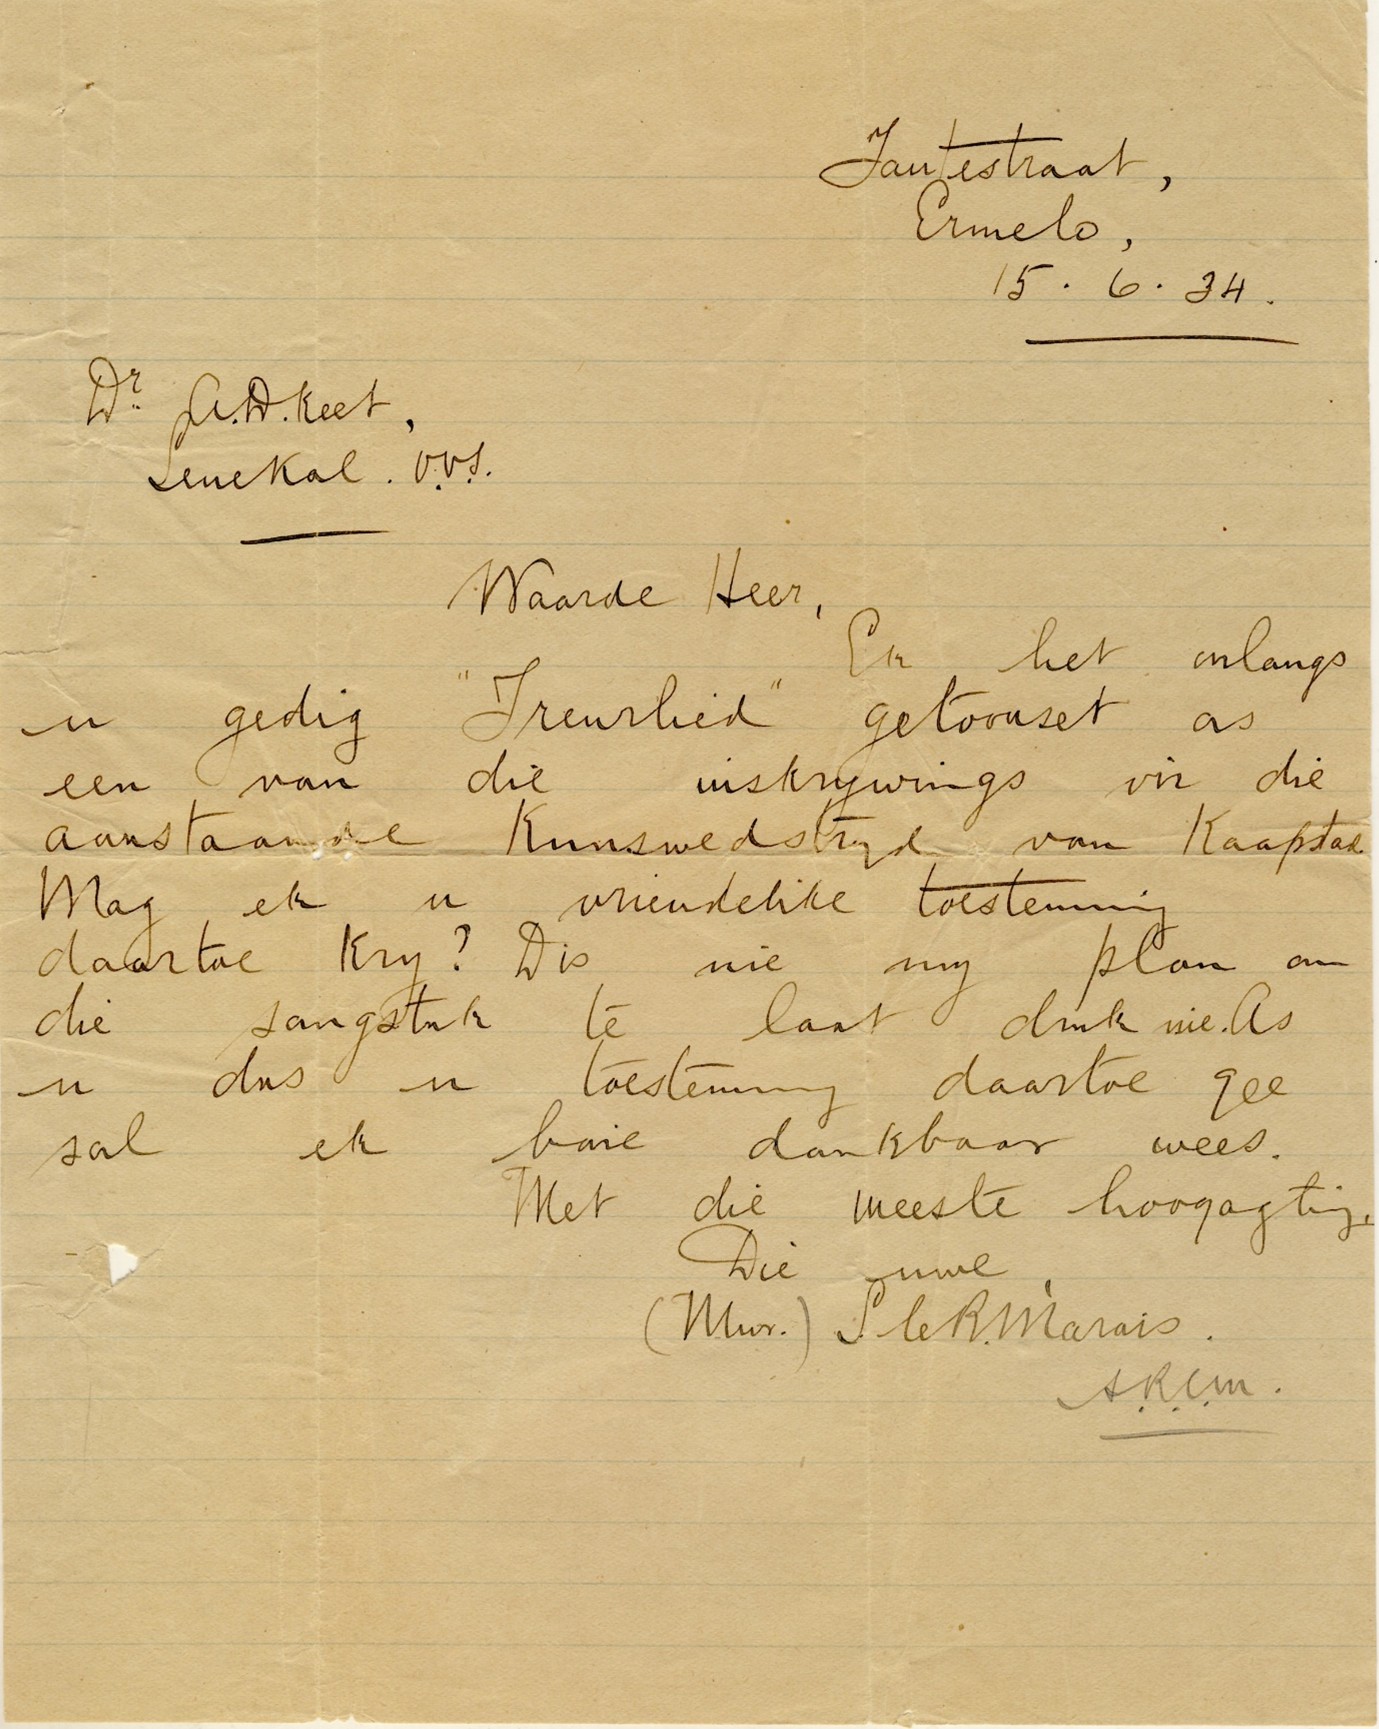 Jantestraat,
Ermelo,
15. 6. 34.
Dr. A.D. Keet,
Senekal. O.V.S.
Waarde Heer,
Ek het onlangs
u gedig "Treurlied" getoonset as
een van die inskrywings vir die
aanstaande Kunswedstryd van Kaapstad.
Mag ek u vriendelike toestemming
daartoe kry? Dis nie my plan om
die sangstuk te laat druk nie. As
u dus u toestemming daartoe gee
sal ek baie dankbaar wees.
Met die meeste hoogagting,
Die uwe,
(Mwr.) S le R. Marais.
A.R.C.M.